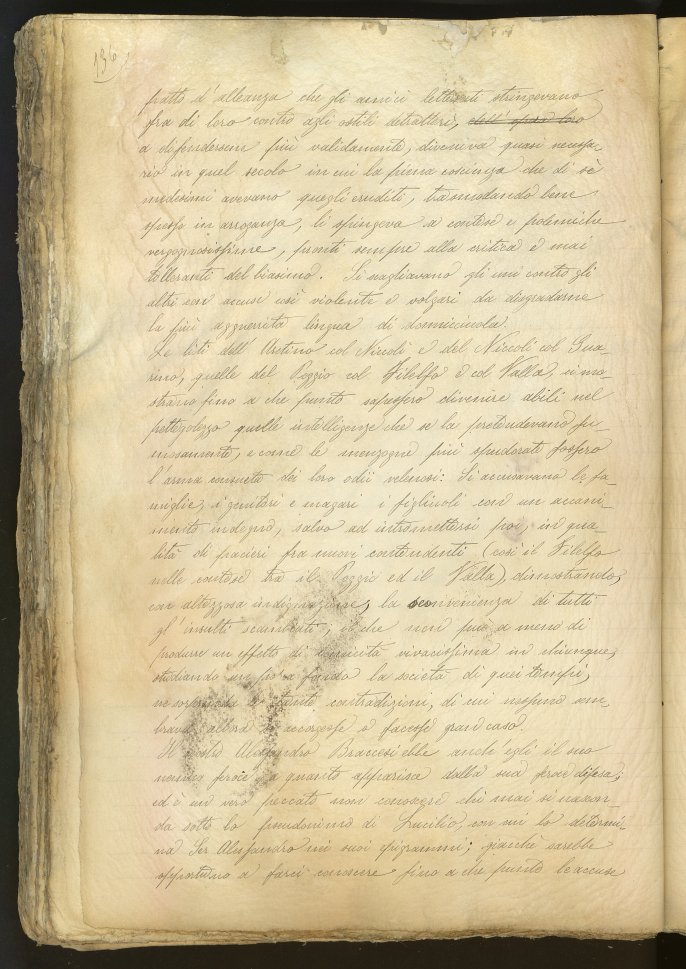 136
fratto d'alleanza che gli amici letterati stringevano
fra di loro contro agli ostili detrattori,
a difendersene più validamente, diveniva quasi necessa-
rio in quel secolo in cui la piena coscienza che di sè
medesimi avevano quegli eruditi, trasmodando bene
spesso in arroganza, li spingeva a contese e polemiche
vergognosissime, pronti sempre alla critica e mai
tolleranti del biasimo. Si scagliavano gli uni contro gli
altri con accuse così violente e volgari da disgradarne
la più agguerrita lingua di donnicciuola.
Le liti dell'Aretino col Niccoli e del Niccoli col Gua-
rino, quelle del Poggio col Filelfo e col Valla, ci mo-
strano fino a che punto sapessero divenire abili nel
pettegolezzo quelle intelligenze che se la pretendevano fa-
mosamente, e come le menzogne più spudorate fossero
l'arma consueta dei loro odii velenosi: Si accusavano le fa-
miglie, i genitori e magari i figliuoli con un accani-
mento indegno, salvo ad intromettersi poi, in qua-
lità di pacieri fra nuovi contendenti (così il Filelfo
nelle contese tra il Poggio ed il Valla), dimostrando,
con altezzosa indignazione, la sconvenienza di tutti
gl'insulti scambiati; il che non può a meno di
produrre un effetto di comicità vivacissima in chiunque,
studiando un po' a fondo la società di quei tempi,
ne sorprenda le tante contradizioni, di cui nessuno sem-
brava allora si accorgesse o facesse gran caso.
Il nostro Alessandro Braccesi ebbe anche egli il suo
nemico feroce a quanto apparisce dalla sua feroce difesa;
ed è un vero peccato non conoscere chi mai si nascon-
da sotto lo pseudonimo di Lucilio, con cui lo determi-
na Ser Alessandro nei suoi epigrammi; giacchè sarebbe
opportuno a farci conoscere fino a che punto le accuse